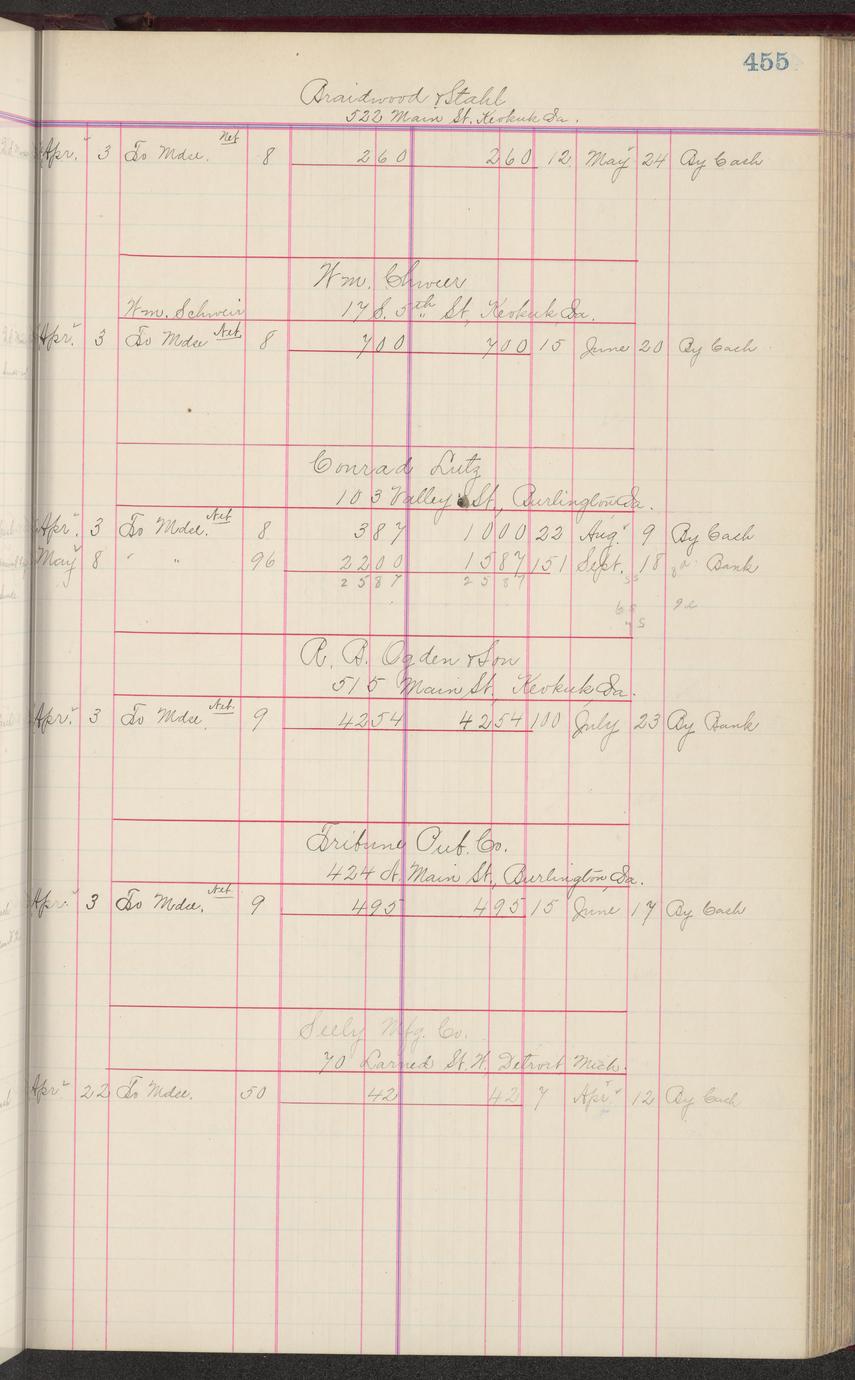 455
Braidwood & Stahl
522 Main St. Keokuk Ia.
Apr. 3 To Mdse. Net 8 260 260 12 May 24 By Cash
Wm. Chweir
Wm. Schweir 17 S. 5th St, Keokuk Ia.
Apr. 3 To Mdse Net 8 700 700 15 June 20 By Cash
Conrad Lutz
103 Valley St, Burlington Ia.
Apr. 3 To Mdse. Net 8 387 1000 22 Aug. 9 By Cash
May 8 " " 96 2200 1587 151 Sept. 18 Bank
2587 2587
R. B. Ogden & Son
515 Main St, Keokuk, Ia.
Apr. 3 To Mdse. Net 9 4254 4254 100 July 23 By Bank
Tribune Pub. Co.
424 N. Main St, Burlington, Ia.
Apr. 3 To Mdse. Net 9 495 495 15 June 17 By Cash
Seely Mfg. Co.
70 Larned St. W. Detroit Mich.
Apr 22 To Mdse. 50 42 42 7 Apr. 12 By Cash